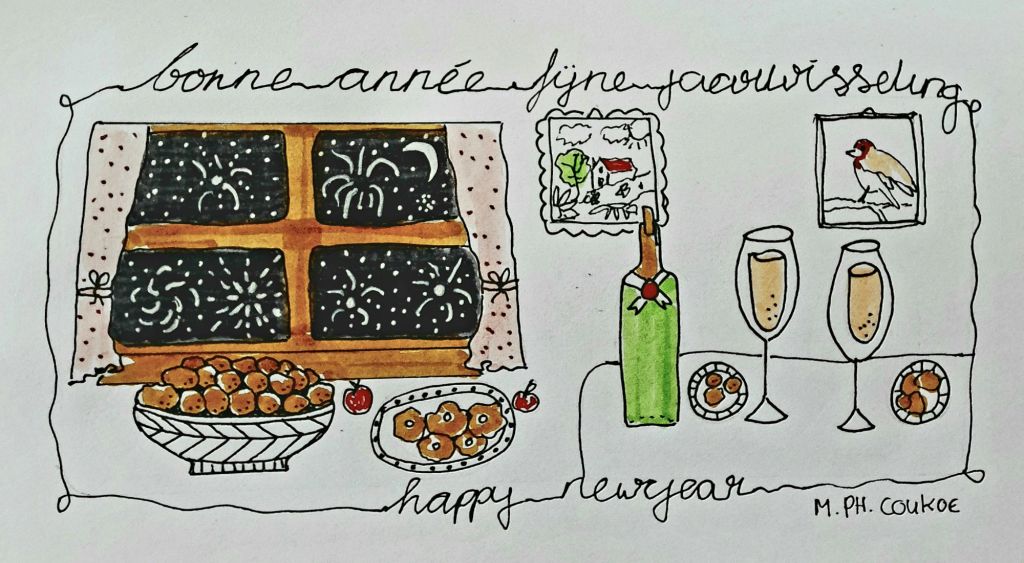 bonne année fijne jaarwisseling
happy newyear
M. PH. COUKOE